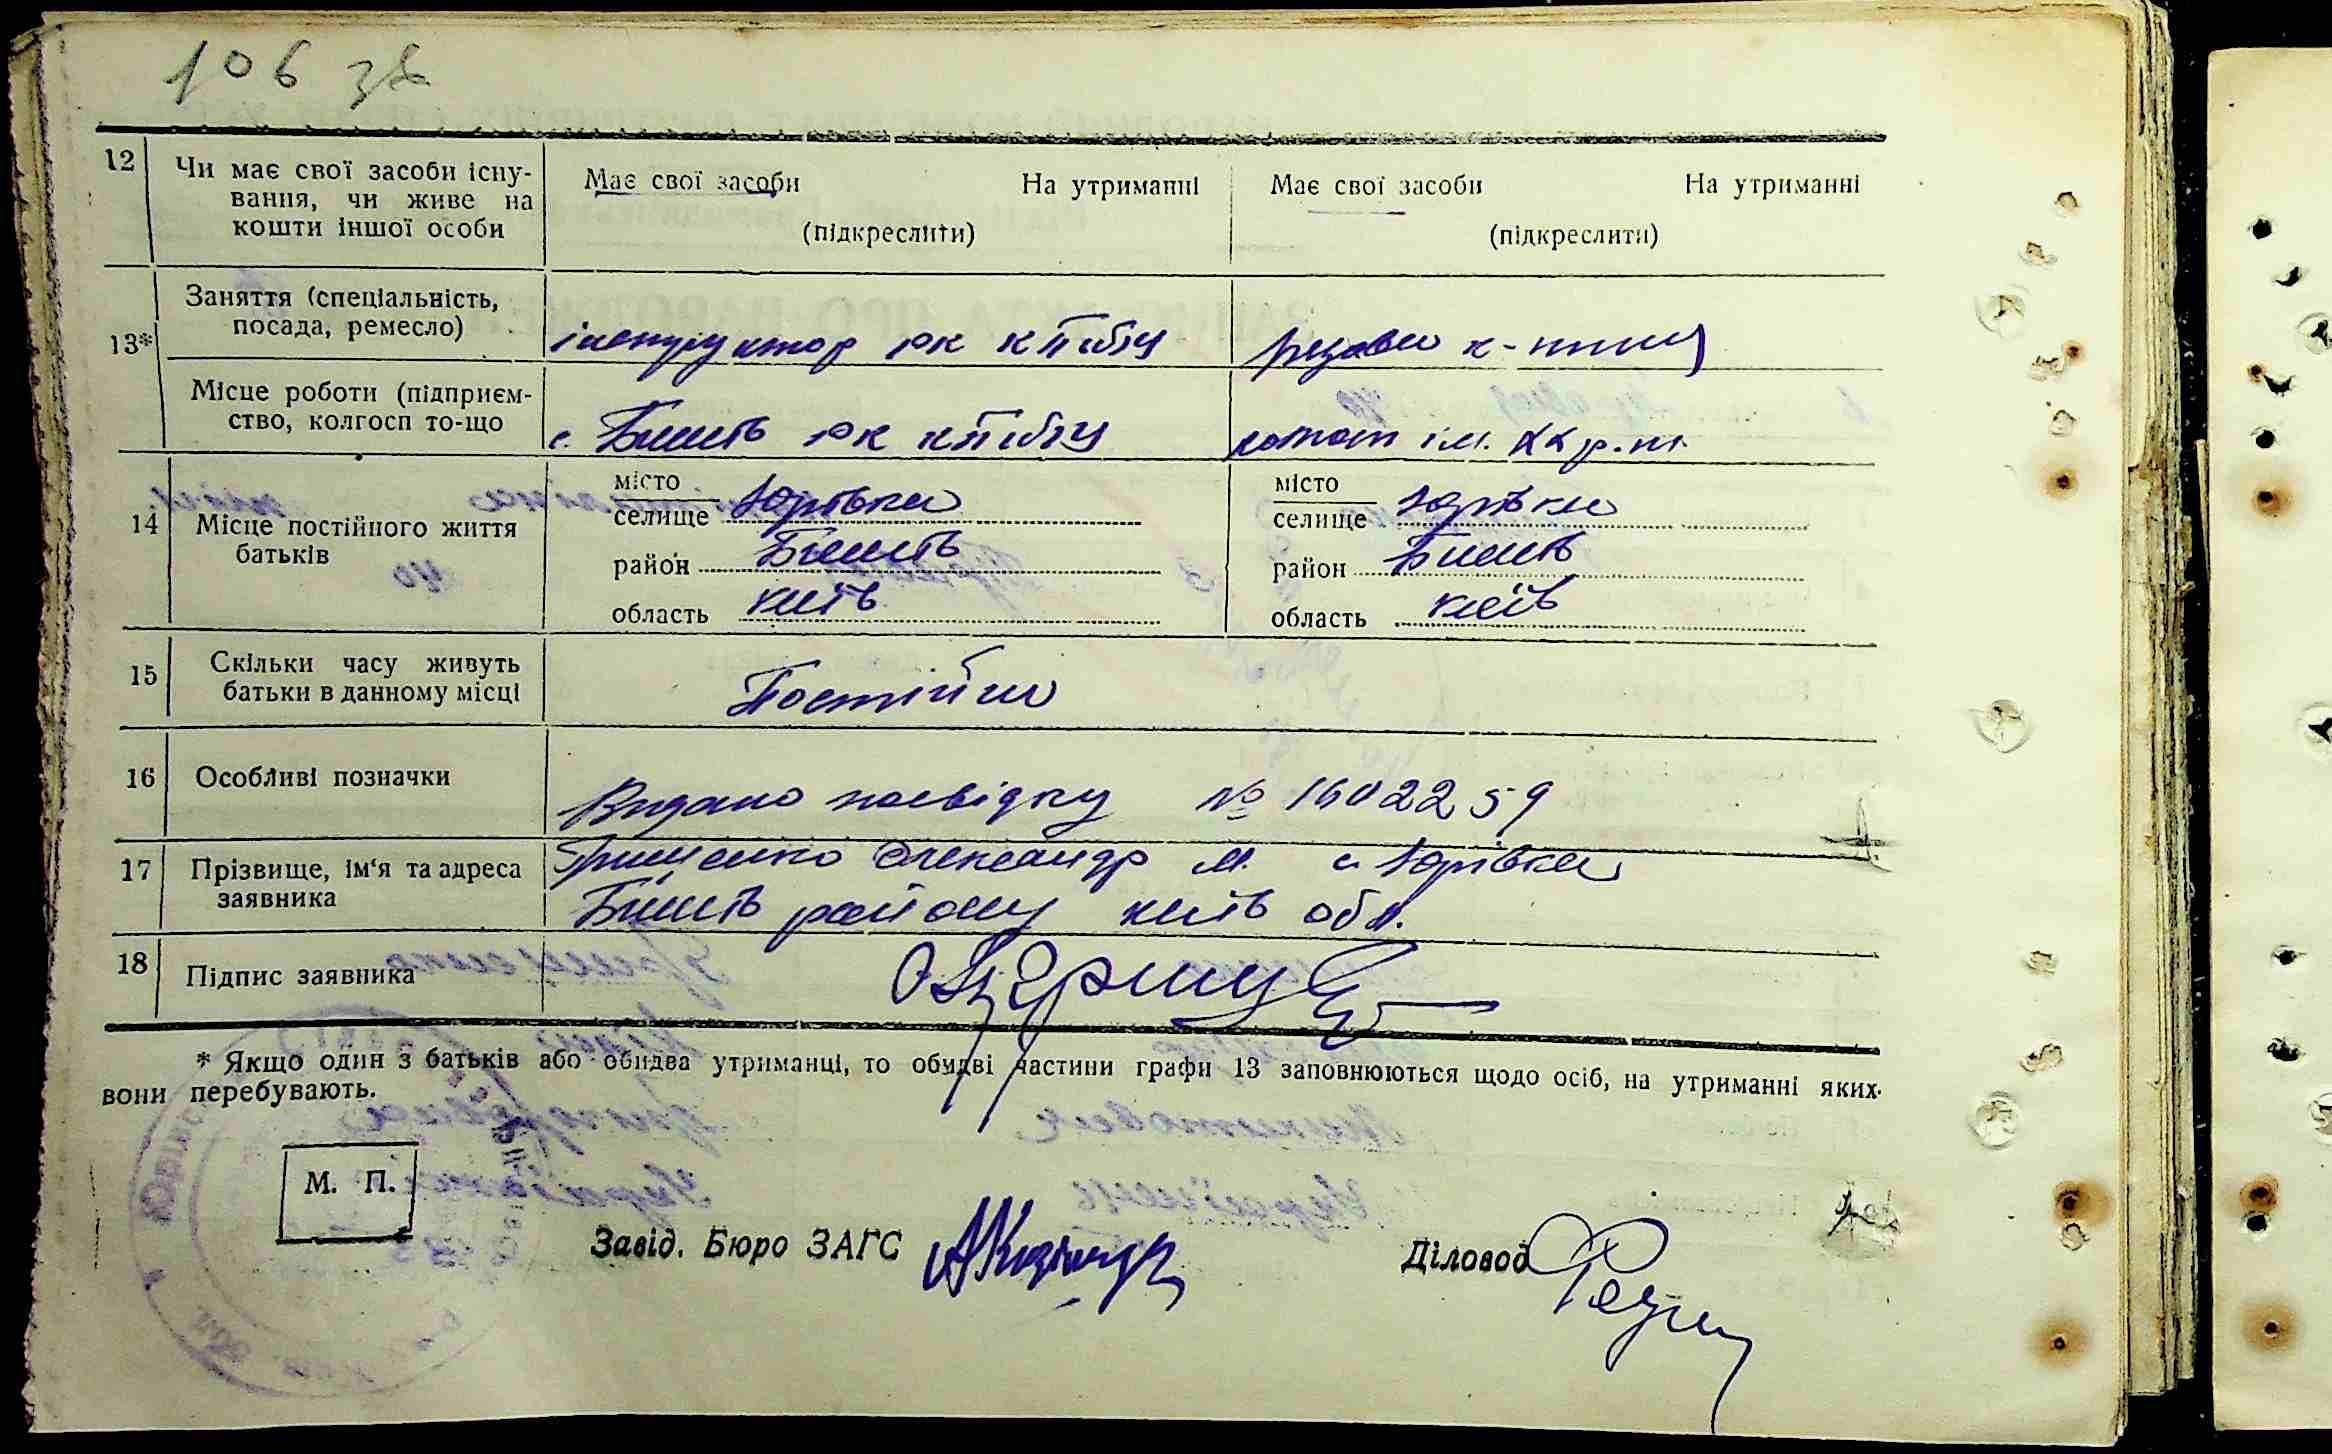 106 зв
12 Чи має свої засоби існу- Має свої засоби На утриманні Має свої засоби На утриманні
вання, чи живе на
кошти іншої особи (підкреслити) (підкреслити)
13* Заняття (спеціальність,
посада, ремесло) інструктор РК КП(б)У рядова к-ниця
Місце роботи (підприєм-
ство, колгосп то-що с. Бишів РК КП(б)У колгосп ім.
14 Місце постійного життя
батьків
місто
селище Юрівка
район Бишів
область Київ
місто
селище Юрівка
район Бишів
область Київ
15 Скільки часу живуть
батьки в данному місці Постійно
16 Особливі позначки Видано посвідку № 1602259
17 Прізвище, ім'я та адреса
заявника Грищенко Олександр М. с. Юрівка
Бишів району Київ обл.
18 Підпис заявника
* Якщо один з батьків або обидва утриманці, то обидві частини графи 13 заповнюються щодо осіб, на утриманні яких
вони перебувають.
М. П.
Завід. Бюро ЗАГС Діловод